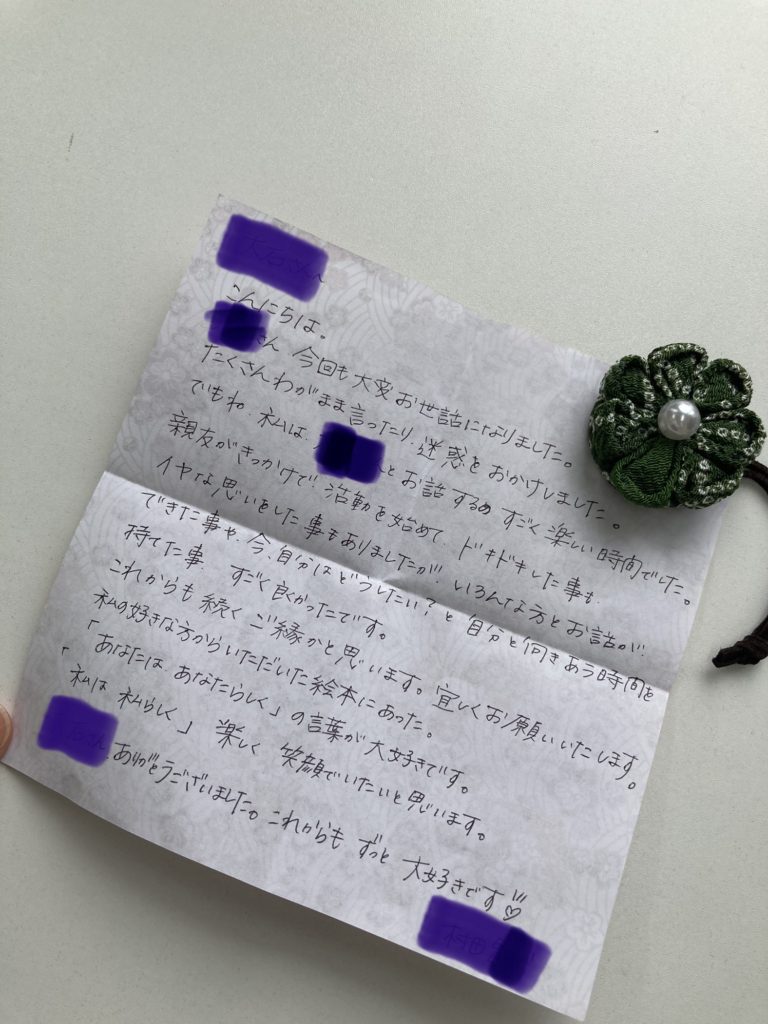 こんにちは。
さん 今回も大変お世話になりました。
たくさんわがまま言ったり、迷惑をおかけしました。
でもね、私は、 とお話するの すごく楽しい時間でした。
親友がきっかけで、活動を始めて、ドキドキした事も、
イヤな思いをした事もありましたが、いろんな方とお話が
できた事や、今、自分はどうしたい?と 自分と向きあう時間を
持てた事 すごく良かったです。
これからも続くご縁かと思います。宜しくお願いいたします。
私の好きな方からいただいた絵本にあった。
「あなたは、あなたらしく」の言葉が大好きです。
「私は 私らしく」 楽しく 笑顔でいたいと思います。
ありがとうございました。これからも ずっと 大好きです♡